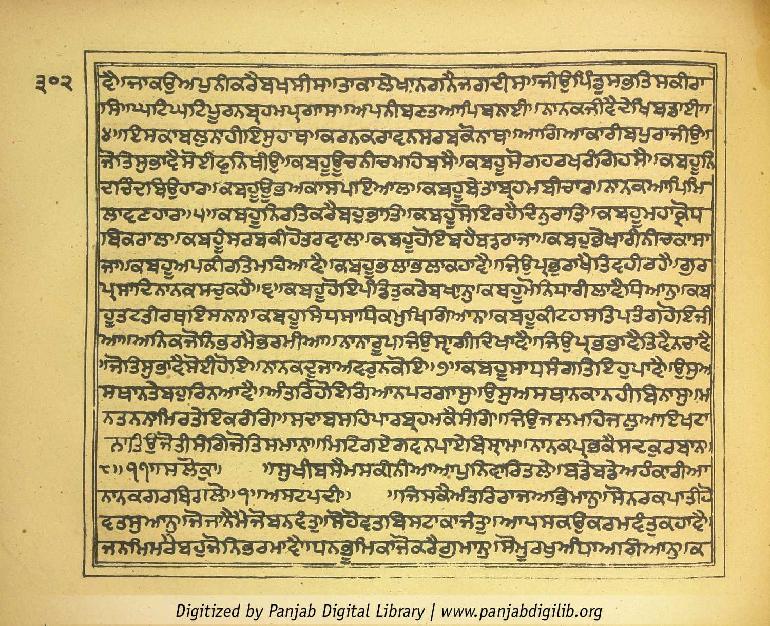 ੩੦੨
ਦੈ॥ਜਾਕਉਅਪੁਨੀਕਰੈਬਖਸੀਸ॥ਤਾਕਾਲੇਖਾਨਗਨੈਜਗਦੀਸ॥ਜੀਉਪਿੰਡੁਸਭਤਿਸਕੀਰਾ
ਸਿ॥ਘਟਿਘਟਿਪੂਰਨਬ੍ਰਹਮਪ੍ਰਗਾਸ॥ਅਪਨੀਬਣਤਆਪਿਬਨਾਈ॥ਨਾਨਕਜੀਵੈਦੇਖਿਬਡਾਈ॥
੪॥ਇਸਕਾਬਲੁਨਾਹੀਇਸੁਹਾਥ॥ਕਰਨਕਰਾਵਨਸਰਬਕੋਨਾਥ॥ਆਗਿਆਕਾਰੀਬਪੁਰਾਜੀਉ॥
ਜੋਤਿਸੁਭਾਵੈਸੋਈਫੁਨਿਥੀਉ॥ਕਬਹੂਊਚਨੀਚਮਹਿਬਸੈ॥ਕਬਹੂਸੋਗਹਰਖਰੰਗਿਹਸੈ॥ਕਬਹੂਨਿੰ
ਦਚਿੰਦਬਿਉਹਾਰ॥ਕਬਹੂਊਭਅਕਾਸਪਇਆਲ॥ਕਬਹੂਬੇਤਾਬ੍ਰਹਮਬੀਚਾਰ॥ਨਾਨਕਆਪਿਮਿ
ਲਾਵਣਹਾਰ॥੫॥ਕਬਹੂਨਿਰਤਿਕਰੈਬਹੁਭਾਤਿ॥ਕਬਹੂਸੋਇਰਹੈਦਿਨੁਰਾਤਿ॥ਕਬਹੂਮਹਾਕ੍ਰੋਧ
ਬਿਕਰਾਲ॥ਕਬਹੂੰਸਰਬਕੀਹੋਤਰਵਾਲ॥ਕਬਹੂਹੋਇਬਹੈਬਡਰਾਜਾ॥ਕਬਹੁਭੇਖਾਰੀਨੀਚਕਾਸਾ
ਜਾ॥ਕਬਹੂਅਪਕੀਰਤਿਮਹਿਆਵੈ॥ਕਬਹੂਭਲਾਭਲਾਕਹਾਵੈ॥ਜਿਉਪ੍ਰਭੁਰਾਖੈਤਿਵਹੀਰਹੈ॥ਗੁਰ
ਪ੍ਰਸਾਦਿਨਾਨਕਸਚੁਕਹੈ॥੬॥ਕਬਹੂਹੋਇਪੰਡਿਤੁਕਰੇਬਖ੍ਯਾਨੁ॥ਕਬਹੂਮੋਨਿਧਾਰੀਲਾਵੈਧਿਆਨੁ॥ਕਬ
ਹੂਤਟਤੀਰਥਇਸਨਾਨ॥ਕਬਹੂਸਿਧਸਾਧਿਕਮੁਖਿਗਿਆਨ॥ਕਬਹੂਕੀਟਹਸਤਿਪਤੰਗਹੋਇਜੀ
ਆ॥ਅਨਿਕਜੋਨਿਭਰਮੈਭਰਮੀਆ॥ਨਾਨਾਰੂਪਜਿਉਸ੍ਵਾਗੀਦਿਖਾਵੈ॥ਜਿਉਪ੍ਰਭਭਾਵੈਤਿਵੈਨਚਾਵੈ
॥ਜੋਤਿਸੁਭਾਵੈਸੋਈਹੋਇ॥ਨਾਨਕਦੂਜਾਅਵਰੁਨਕੋਇ॥੭॥ਕਬਹੂਸਾਧਸੰਗਤਿਇਹੁਪਾਵੈ॥ਉਸੁਅ
ਸਥਾਨਤੇਬਹੁਰਿਨਆਵੈ॥ਅੰਤਰਿਹੋਇਗਿਆਨਪਰਗਾਸੁ॥ਉਸੁਅਸਥਾਨਕਾਨਹੀਬਿਨਾਸੁ॥ਮ
ਨਤਨਨਾਮਿਰਤੇਇਕਰੰਗਿ॥ਸਦਾਬਸਹਿਪਾਰਬ੍ਰਹਮਕੈਸੰਗਿ॥ਜਿਉਜਲਮਹਿਜਲੁਆਇਖਟਾ
ਨਾ॥ਤਿਉਜੋਤੀਸੰਗਿਜੋਤਿਸਮਾਨਾ॥ਮਿਟਿਗਏਗਵਨਪਾਏਬਿਸ੍ਰਾਮ॥ਨਾਨਕਪ੍ਰਭਕੈਸਦਕੁਰਬਾਨ॥
੮॥੧੧॥ਸਲੋਕੁ॥ ॥ਸੁਖੀਬਸੈਮਸਕੀਨੀਆਆਪੁਨਿਵਾਰਿਤਲੇ॥ਬਡੇਬਡੇਅਹੰਕਾਰੀਆ
ਨਾਨਕਗਰਬਿਗਲੇ॥੧॥ਅਸਟਪਦੀ॥ ॥ਜਿਸਕੈਅੰਤਰਿਰਾਜਅਭਿਮਾਨੁ॥ਸੋਨਰਕਪਾਤੀਹੋ
ਵਤਸੁਆਨੁ॥ਜੋਜਾਨੈਮੈਜੋਬਨਵੰਤੁ॥ਸੋਹੋਵਤਬਿਸਟਾਕਾਜੰਤੁ॥ਆਪਸਕਉਕਰਮਵੰਤੁਕਹਾਵੈ॥
ਜਨਮਿਮਰੈਬਹੁਜੋਨਿਭਰਮਾਵੈ॥ਧਨਭੂਮਿਕਾਜੋਕਰੈਗੁਮਾਨੁ॥ਸੋਮੂਰਖੁਅੰਧਾਅਗਿਆਨੁ॥ਕ
Digitized by Panjab Digital Library | www.panjabdigilib.org